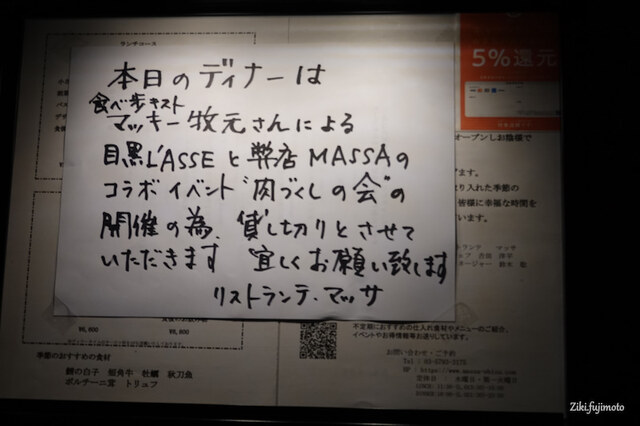 ランチコース
本日のディナーは
食べ歩キスト
マッキー牧元さんによる
目黒L'ASSEと弊店MASSAの
コラボイベント"肉づくしの会"の
開催の為、貸し切りとさせて
いただきます 宜しくお願い致します
リストランテ・マッサ
5%還元
オープンしお陰様で
ます。
り入れた季節の
皆様に幸福な時間を
います。
マッサ
¥6,800
季節のおすすめの食材
鱈の白子 短角牛 牡蠣 秋刀魚
ポルチーニ茸 トリュフ
不定期におすすめの仕入れ食材やメニューのご紹介、
イベントやお得情報等お送りしています。
お問い合わせ・ご予約
Ziki.fujimoto